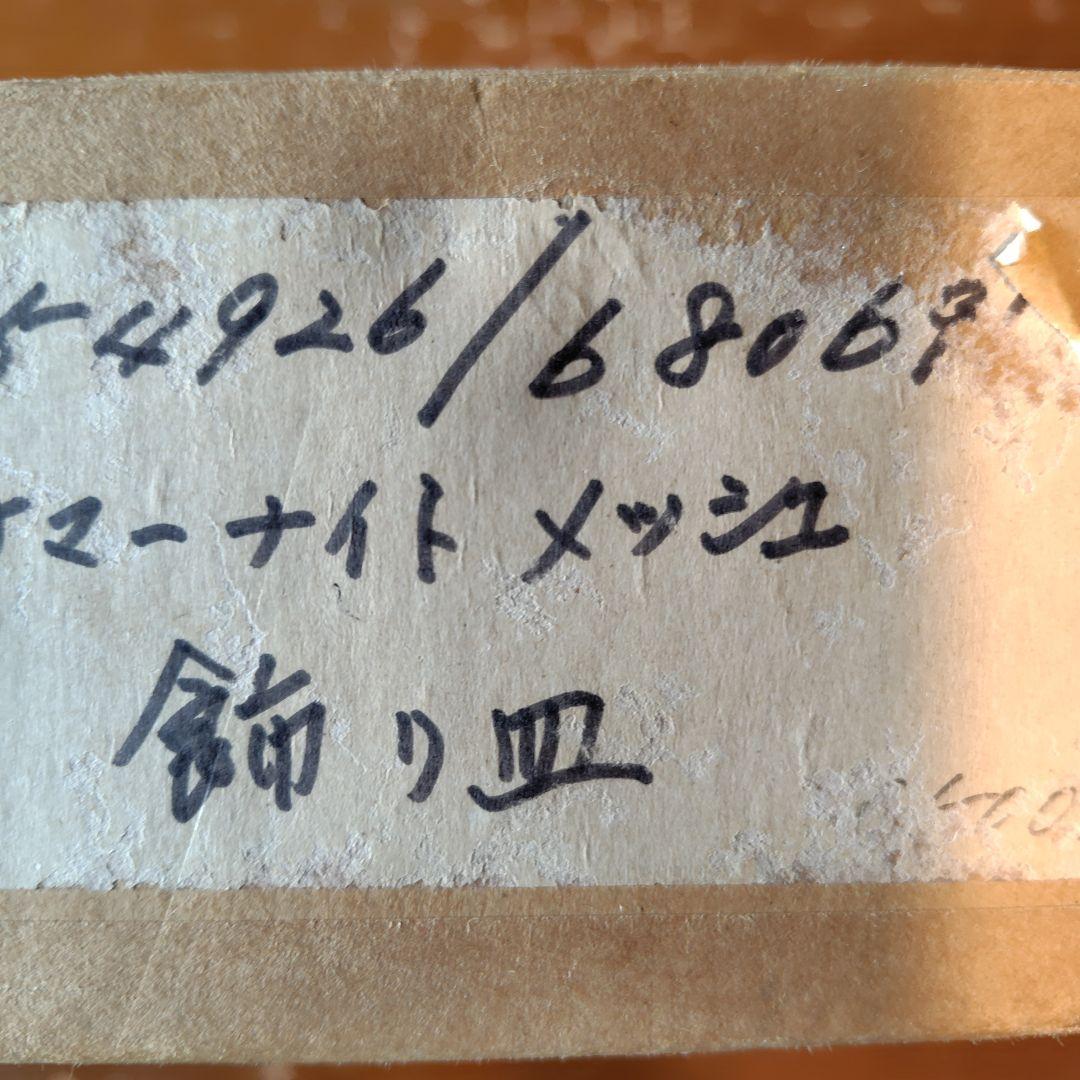 54926/68067
サマーナイト メッシュ
飾り皿